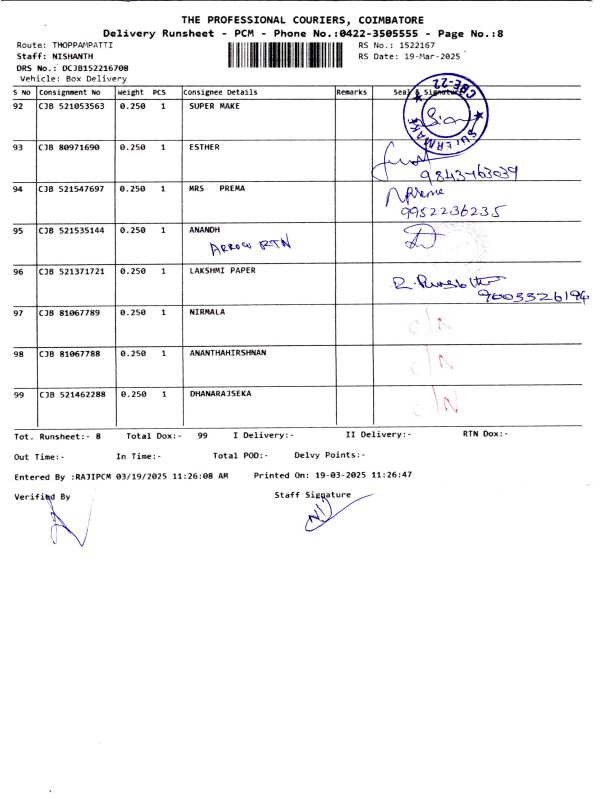 THE PROFESSIONAL COURIERS, COIMBATORE
Delivery Runsheet - PCM - Phone No.:0422-3505555 - Page No.:8
Route: THOPPAMPATTI RS No.: 1522167
Staff: NISHANTH RS Date: 19-Mar-2025
DRS No.: DCJB152216708
Vehicle: Box Delivery
S No Consignment No Weight PCS Consignee Details Remarks Seal & Signature
92 CJB 521053563 0.250 1 SUPER MAKE
CBE-22
SUPERMAKE
93 CJB 80971690 0.250 1 ESTHER
9843463039
94 CJB 521547697 0.250 1 MRS PREMA Prema
9952236235
95 CJB 521535144 0.250 1 ANANDH
ARROW RTN
96 CJB 521371721 0.250 1 LAKSHMI PAPER
97 CJB 81067789 0.250 1 NIRMALA C/N
98 CJB 81067788 0.250 1 ANANTHAHIRSHNAN C/N
99 CJB 521462288 0.250 1 DHANARAJSEKA C/N
Tot. Runsheet:- 8 Total Dox:- 99 I Delivery:- II Delivery:- RTN Dox:-
Out Time:- In Time:- Total POD:- Delvy Points:-
Entered By :RAJIPCM 03/19/2025 11:26:08 AM Printed On: 19-03-2025 11:26:47
Verified By Staff Signature